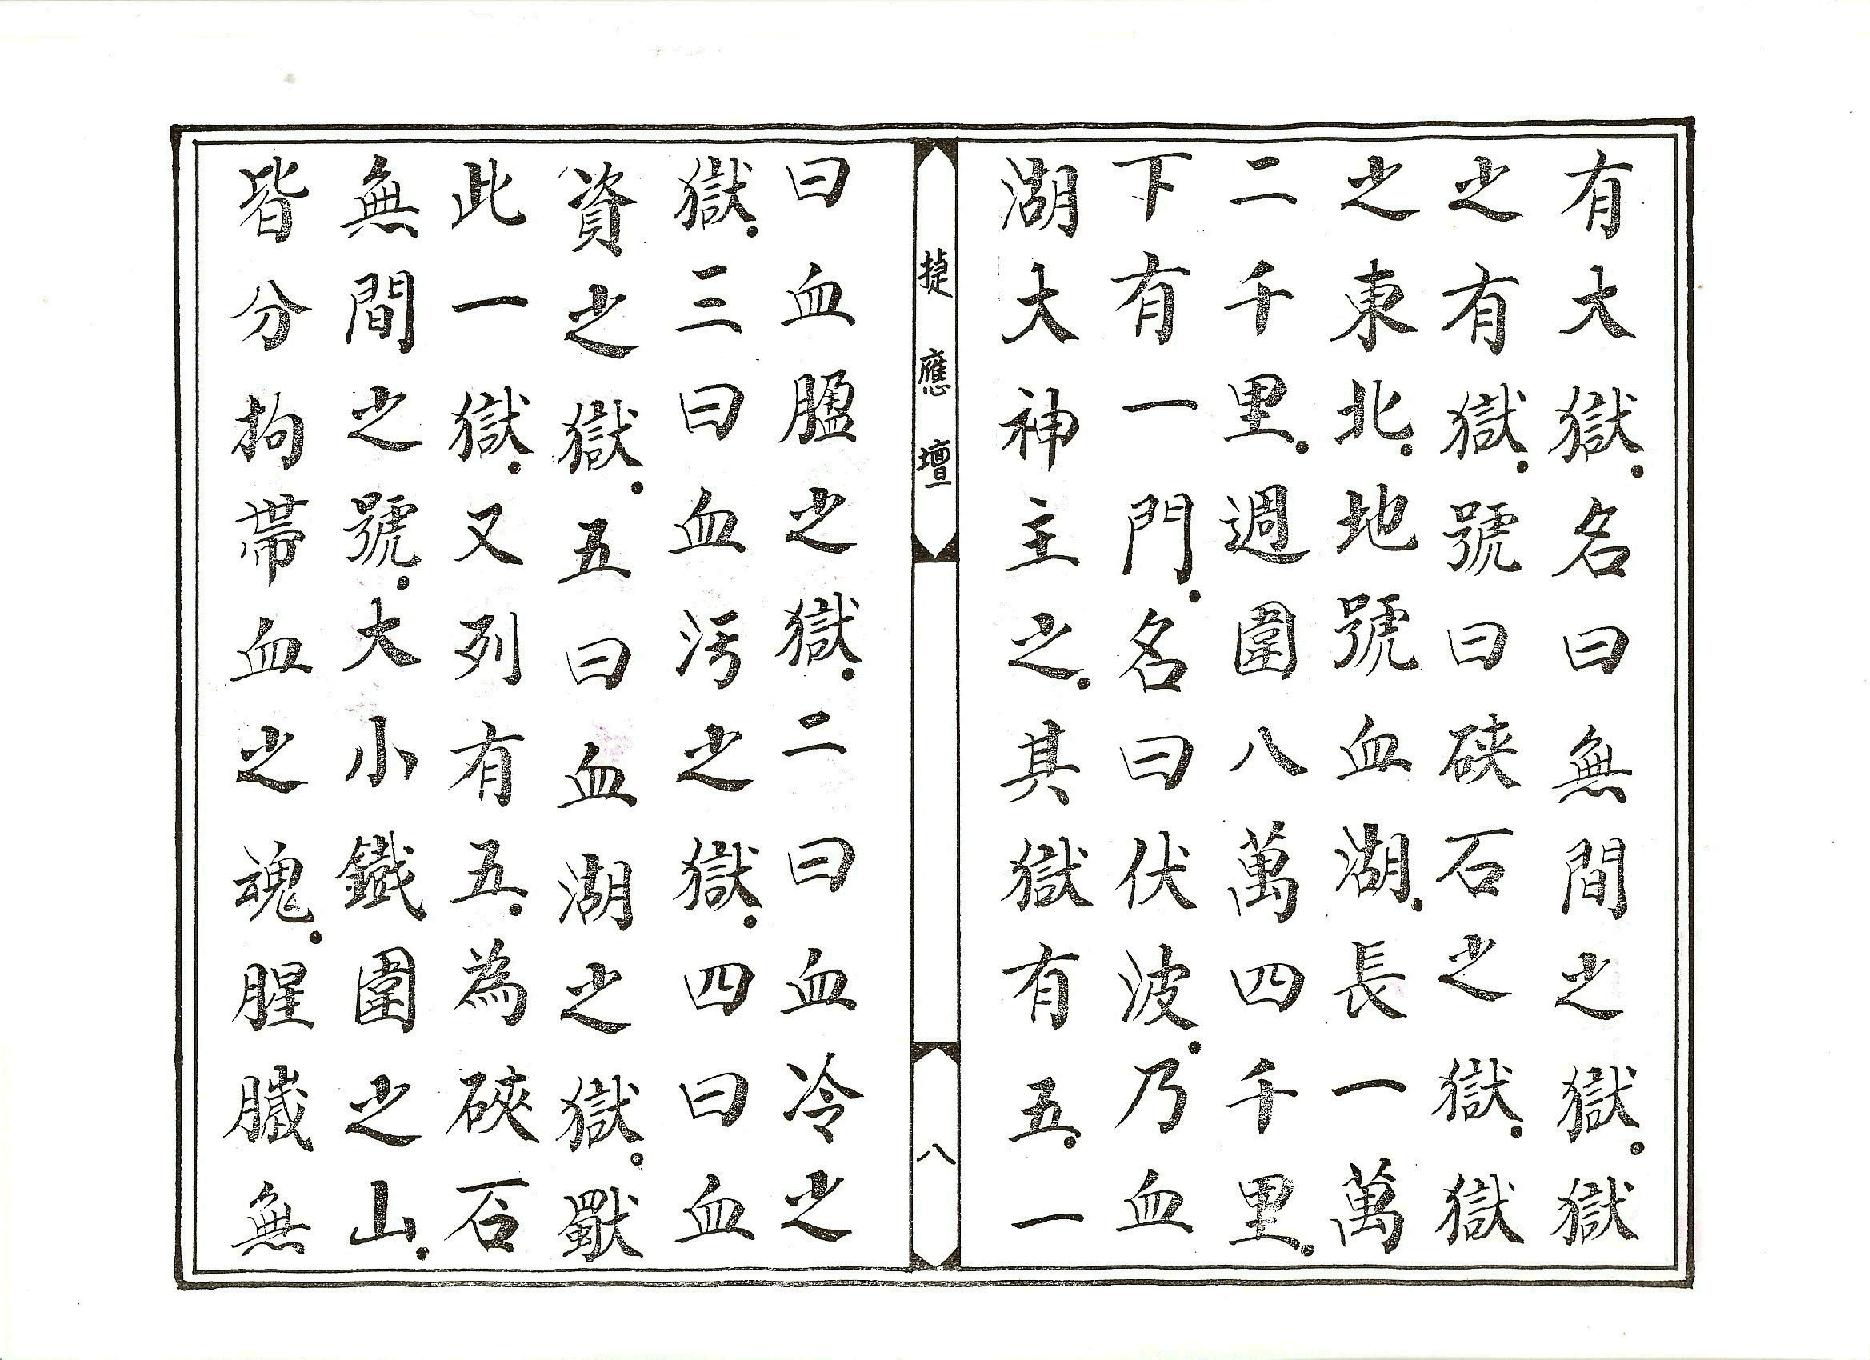 有大獄。名曰無間之獄。獄
之有獄。號曰硤石之獄。獄
之東北。地號血湖。長一萬
二千里。週圍八萬四千里。
下有一門。名曰伏波。乃血
湖大神主之。其獄有五。一
㨗應壇
八
曰血腽之獄。二曰血冷之
獄。三曰血污之獄。四曰血
資之獄。五曰血湖之獄。獨
此一獄。又列有五。為硤石
無間之號。大小鐵圍之山。
皆分拘帶血之魂。腥臟無